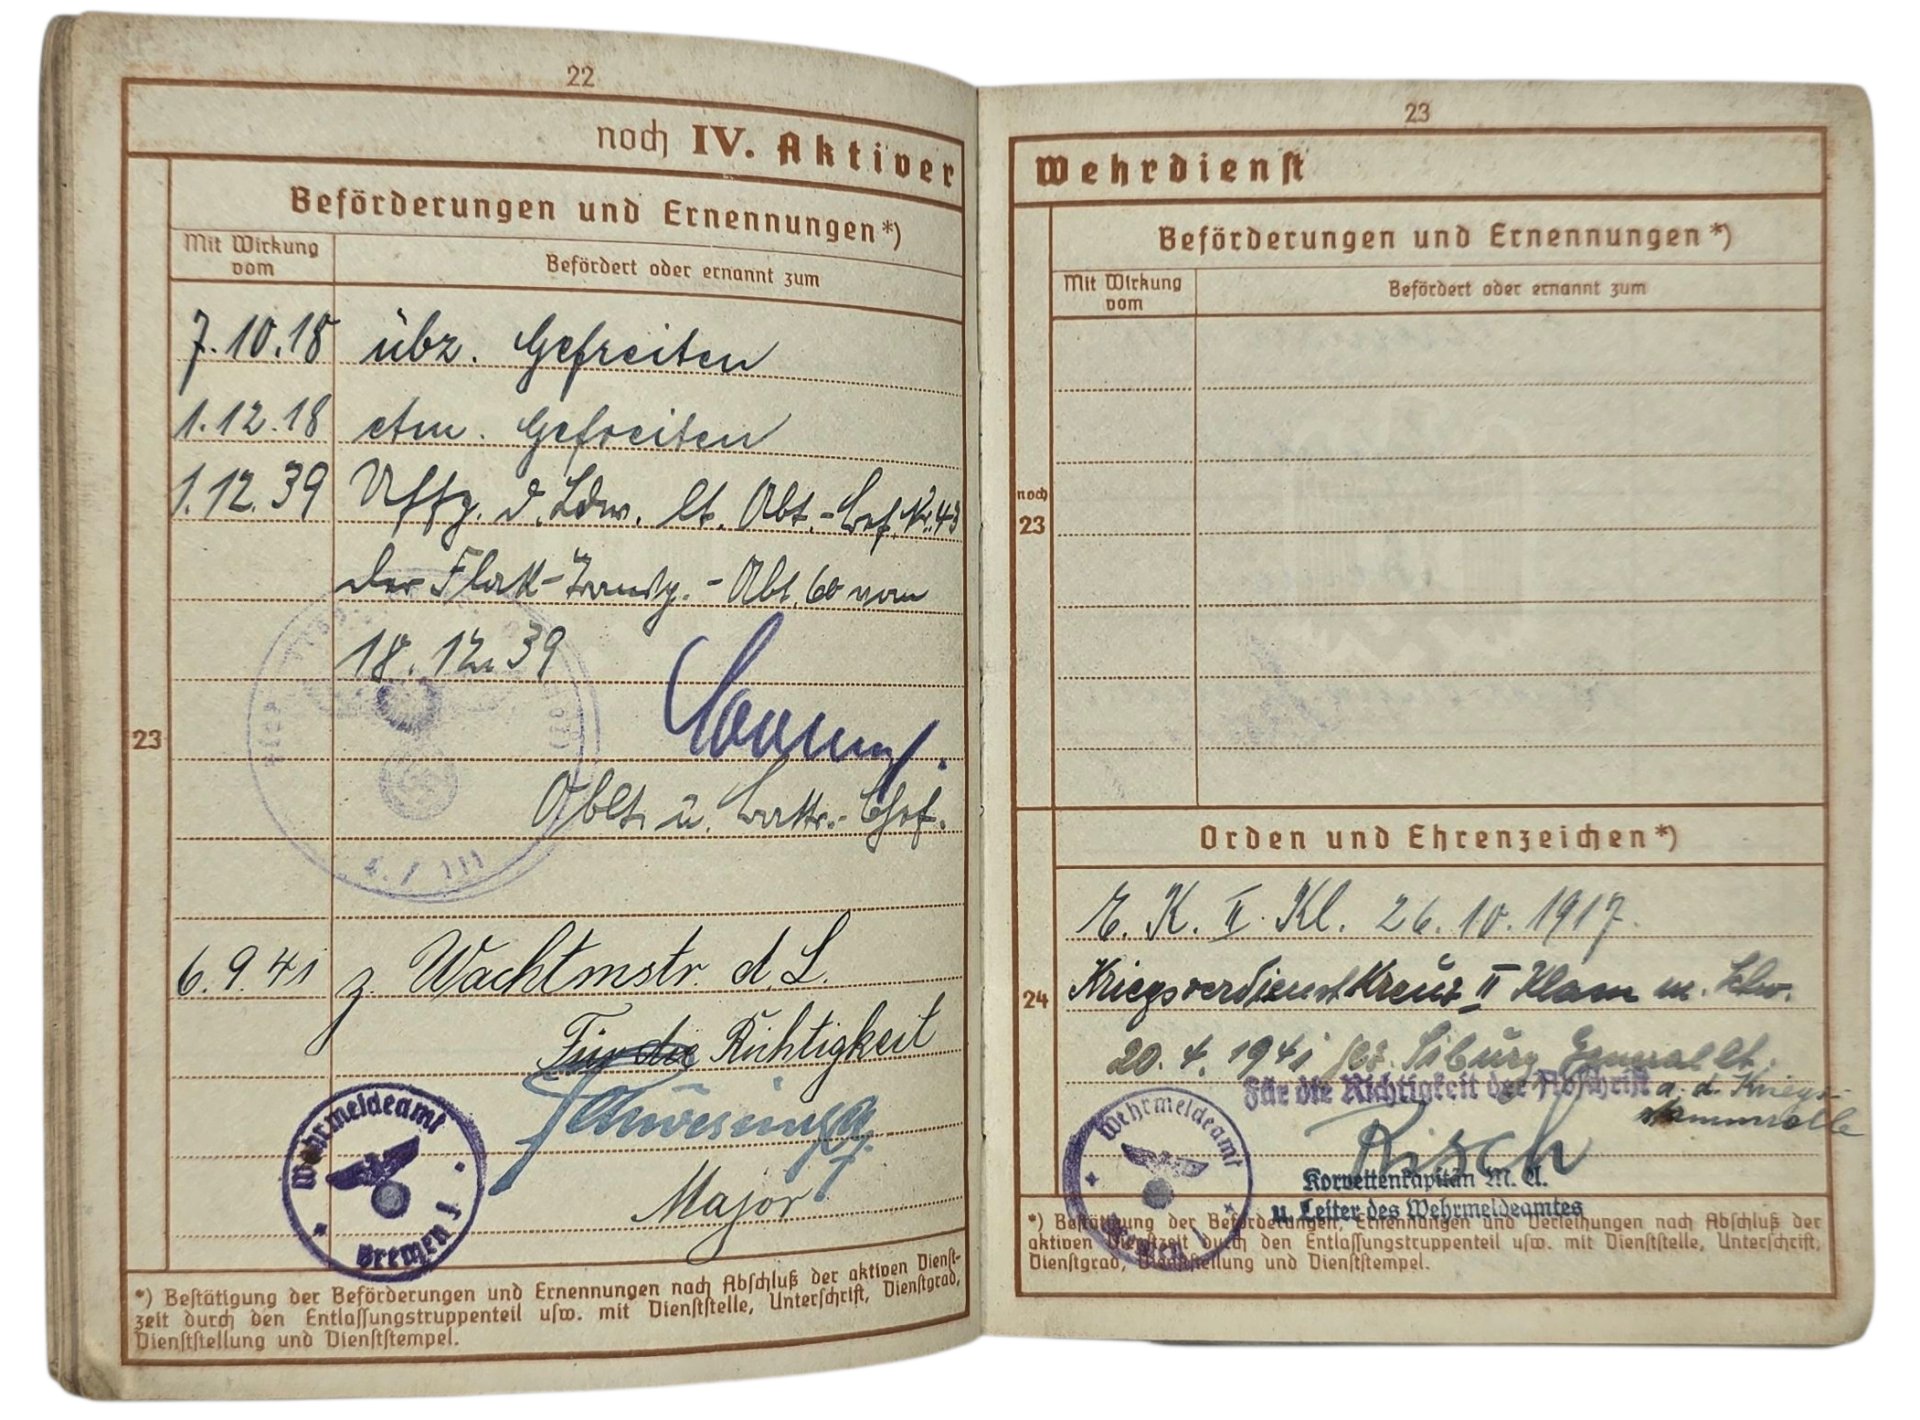 22
noch IV. Aktiver
Beförderungen und Ernennungen*)
Mit Wirkung vom
Befördert oder ernannt zum
7.10.18 übz. Gefreiten
1.12.18 etm. Gefreiten
1.12.39 Uffz. d. Ldw. lt. Abt.-Bef. Nr. 43
der Flak-Transp.-Abt. 60 vom
18.12.39
23
Oblt. u. Battr.-Chef.
6.9.41 z. Wachtmstr. d. L.
Für die Richtigkeit
Major
Wehrmeldeamt
Bremen I
*) Bestätigung der Beförderungen und Ernennungen nach Abschluß der aktiven Dienst-
zeit durch den Entlassungstruppenteil usw. mit Dienststelle, Unterschrift, Dienstgrad,
Dienststellung und Dienststempel.
23
Wehrdienst
Beförderungen und Ernennungen*)
Mit Wirkung vom
Befördert oder ernannt zum
noch
23
Orden und Ehrenzeichen*)
E. K. II. Kl. 26.10.1917.
24
Kriegsverdienstkreuz II Klasse m. Schw.
20.4.1941 gez. Siburg Generallt.
Für die Richtigkeit der Abschrift a. d. Kriegs-
stammrolle
Risch
Korvettenkapitän M. A.
u. Leiter des Wehrmeldeamtes
Wehrmeldeamt
Bremen I
*) Bestätigung der Beförderungen, Ernennungen und Verleihungen nach Abschluß der
aktiven Dienstzeit durch den Entlassungstruppenteil usw. mit Dienststelle, Unterschrift,
Dienstgrad, Dienststellung und Dienststempel.